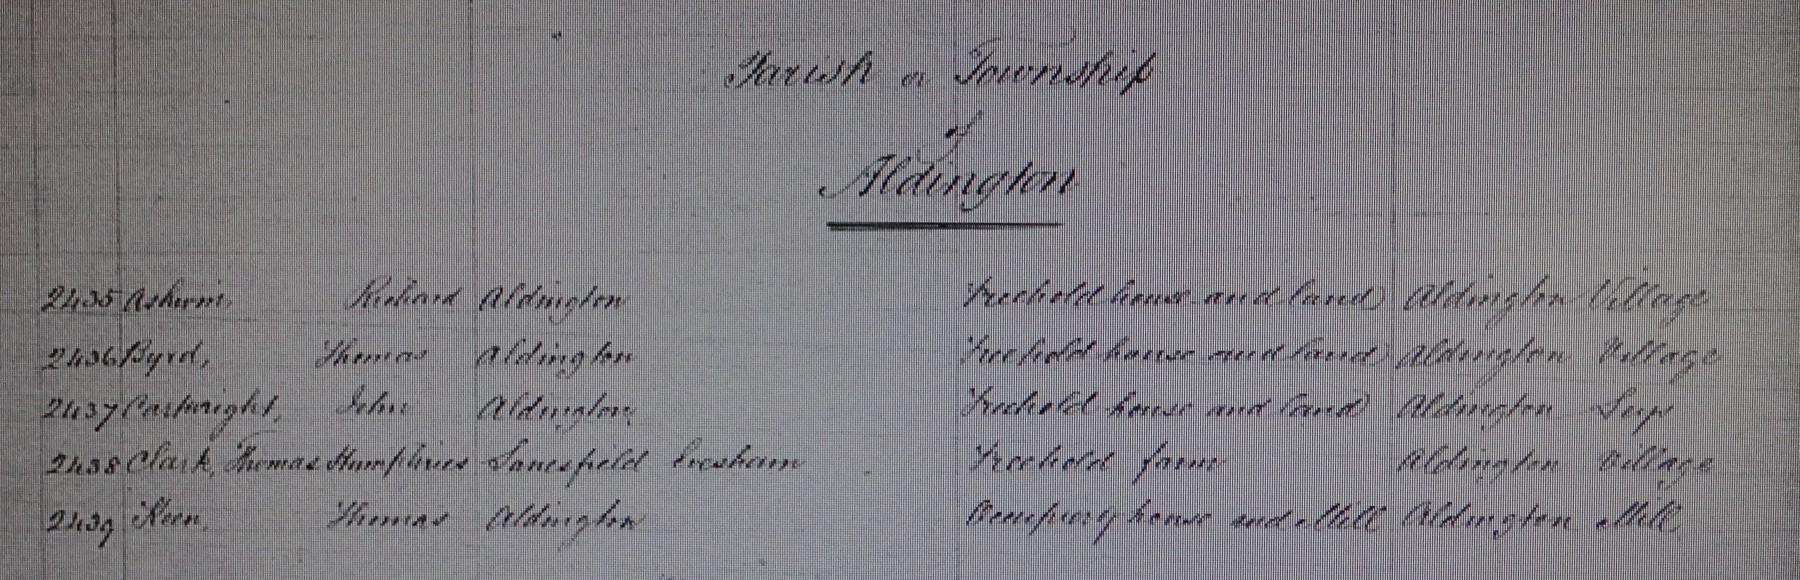 Parish or Township
of
Aldington
2435 Ashwin, Richard Aldington Freehold house and land Aldington Village
2436 Byrd, Thomas Aldington Freehold house and land Aldington Village
2437 Cartwright, John Aldington Freehold house and land Aldington
2438 Clark, Thomas Humphries Evesham Freehold farm Aldington Village
2439 Keen, Thomas Aldington house and Mill Aldington Mill